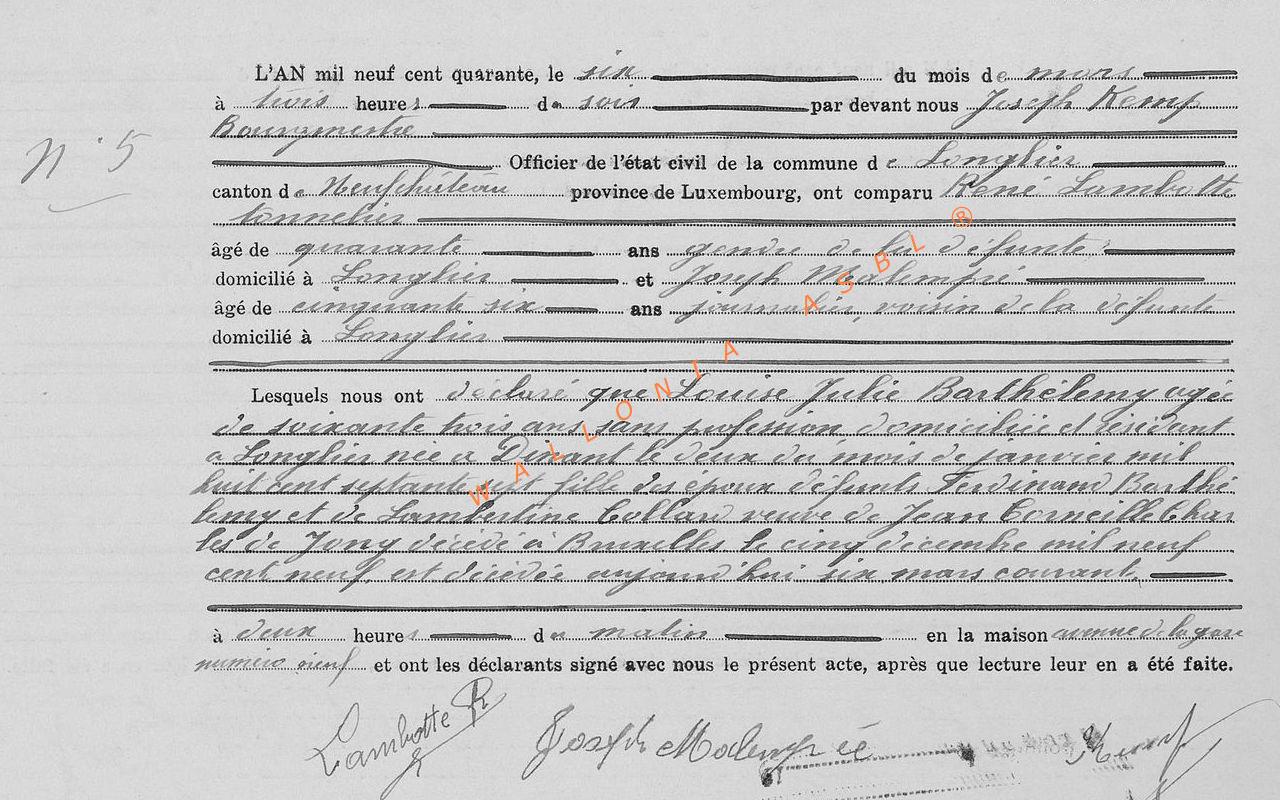 L'AN mil neuf cent quarante, le six du mois de mars
à trois heures du soir par devant nous Joseph Kemp
Bourgmestre
N° 5
Officier de l'état civil de la commune de Longlier
canton de Neufchâteau province de Luxembourg, ont comparu René Lambotte
tonnelier
âgé de quarante ans gendre de la défunte
domicilié à Longlier et Joseph Malempré
âgé de cinquante six ans journalier, voisin de la défunte
domicilié à Longlier
Lesquels nous ont déclaré que Louise Julie Barthélemy agée
de soixante trois ans, sans profession domiciliée et résidant
a Longlier née à Dinant le deux du mois de janvier mil
huit cent septante sept fille des époux défunts Ferdinand Barthé
lemy et de Lambertine Collard veuve de Jean Corneille Char
les de Jong décédé à Bruxelles le cinq décembre mil neuf
cent neuf est décédée aujourd'hui six mars courant.
à deux heures du matin en la maison avenue de la gare
numéro neuf et ont les déclarants signé avec nous le présent acte, après que lecture leur en a été faite.
Lambotte R Joseph Malempré
WALLONIA ASBL ®